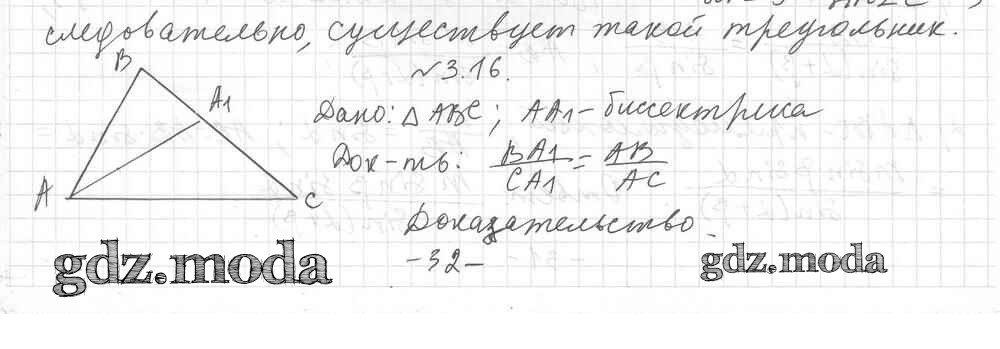 следовательно, существует такой треугольник.
№3.16.
B
A1
Дано: △ABC; AA1 - биссектриса
Док-ть: BA1/CA1 = AB/AC
A
C
Доказательство
-32-
gdz.moda
gdz.moda